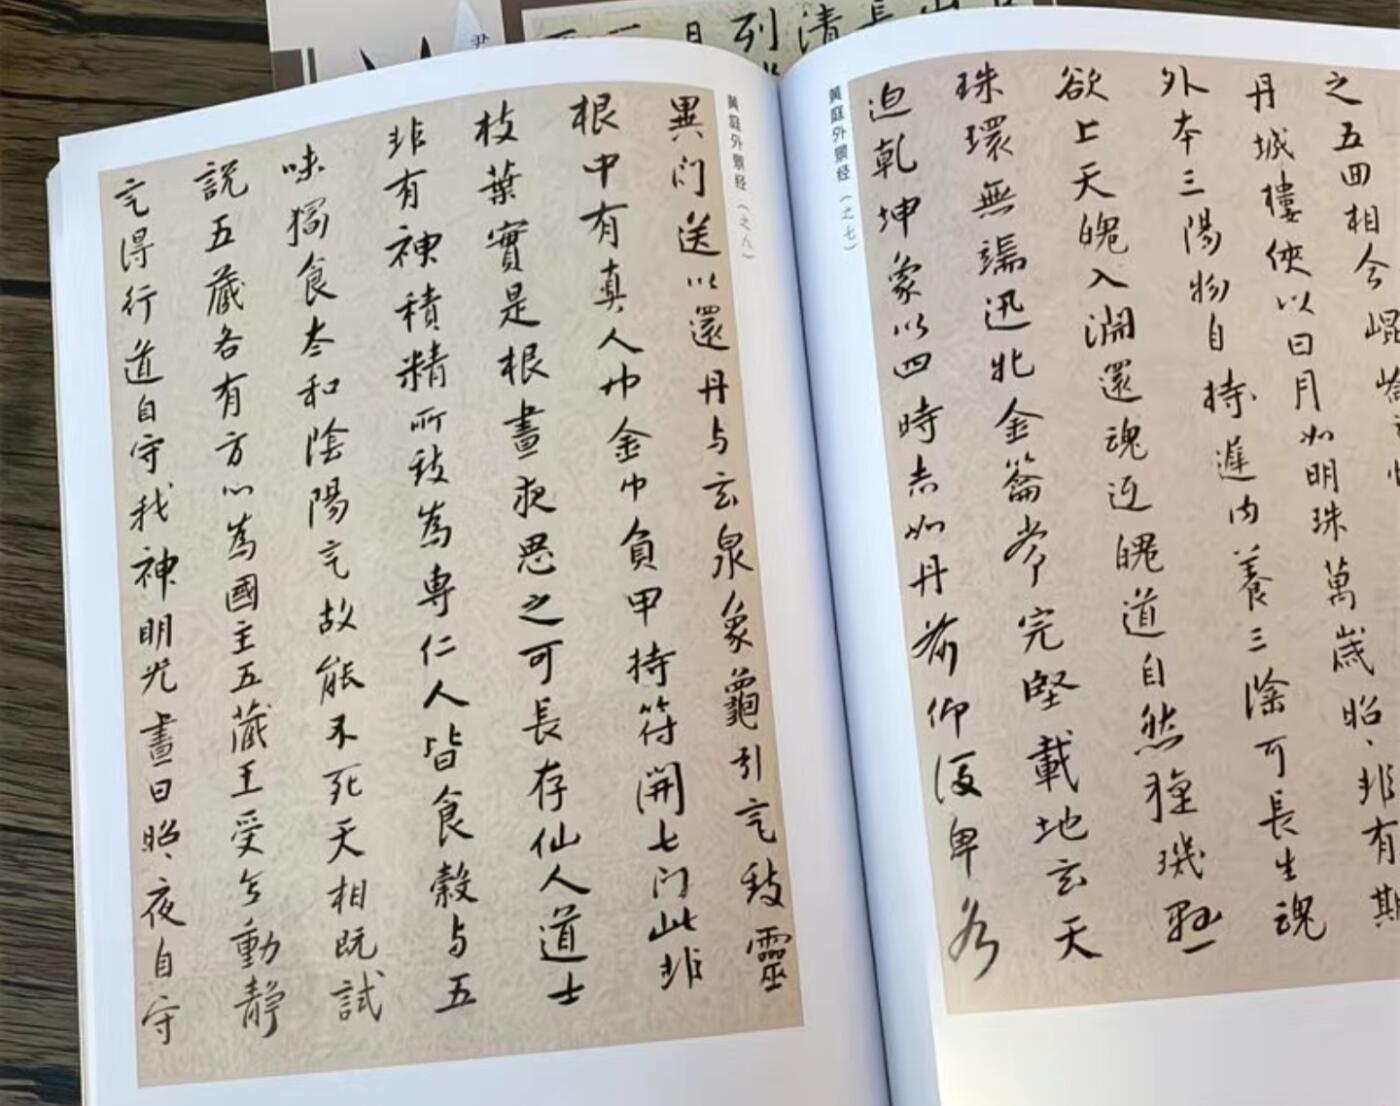 黄庭外景经（之七）
之五回相合崐崘
丹城樓俠以日月如明珠萬歲昭、非有期
外本三陽物自持遲内養三陰可長生魂
欲上天魄入淵還魂返魄道自然璇璣懸
珠環無端迅牝金籥常完堅載地玄天
迫乾坤象以四時赤如丹前仰後卑各
黄庭外景经（之八）
異門送以還丹与玄泉象龜引氣致靈
根中有真人巾金巾負甲持符開七門此非
枝葉實是根晝夜思之可長存仙人道士
非有神積精所致為專仁人皆食穀与五
味獨食太和陰陽氣故能不死天相既試
説五藏各有方心為國主五藏王受氣動靜
氣得行道自守我神明光晝日昭、夜自守
列清長
尹